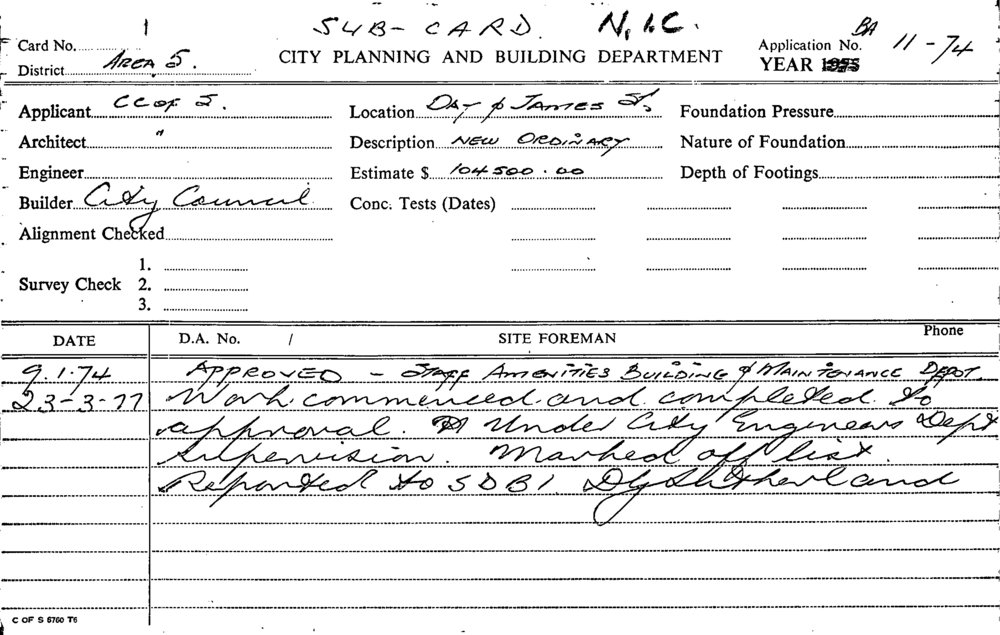 1 SUB-CARD. N.I.C. BA
Card No. CITY PLANNING AND BUILDING DEPARTMENT Application No. 11-74
District AREA 5. YEAR
Applicant CC OF S. Location DAY & JAMES ST. Foundation Pressure
Architect " Description NEW ORDINARY Nature of Foundation
Engineer Estimate $ 104500.00 Depth of Footings
Builder City Council Conc. Tests (Dates)
Alignment Checked
1.
Survey Check 2.
3.
DATE D.A. No. / SITE FOREMAN Phone
9.1.74 APPROVED - STAFF AMENITIES BUILDING & MAINTENANCE DEPOT.
23-3-77 Work commenced and completed to
approval. Under City Engineers Dept
supervision. Marked off list.
Reported to SDBI. DG Sutherland
C OF S 6760 T6